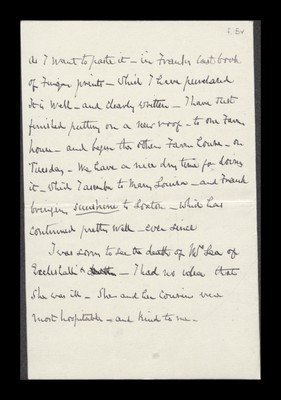 as I want to paste it – in Franks last book
of Finger prints – which I have purchased
It is Well – and clearly written – I have just
finished putting on a new roof – to one Farm
house – and begin the other Farm House – on
Tuesday – We have a nice dry time for doing
it – which I ascribe to Mary Louisa – and Frank
bringing sunshine to Loxton – which has
continued pretty well – ever since
I was sorry to see the death of Mrs Lea of
– I had no idea that
she was ill – She and her Cousin were
most hospitable – and kind to me –